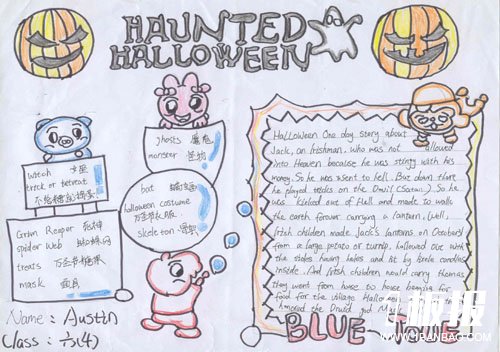 HAUNTED
HALLOWEEN
ghosts 魔鬼
monster 怪物
witch 女巫
trick or
不给糖就捣蛋
bat 蝙蝠
halloween costume
万圣节衣服
skeleton 骨架
Grim Reaper 死神
spider Web 蜘蛛网
treats 万圣节糖果
mask 面具
Name: Austin
Class: 六(4)
Halloween One day story about
Jack, an Irishman, who was not allowed
into Heaven because he was stingy with his
money. So he was sent to hell. But down there
he played tricks on the Devil (Satan). So he
was kicked out of Hell and made to walk
the earth forever carrying a lantern. Well,
Irish children made Jack's lanterns on October
from a large potato or turnip, hollowed out with
the sides having holes and lit by little candles
inside. And Irish children would carry them as
they went from house to house begging for
food for the village Hallo
honored the Druid god Mu
BLUE
板报
WWW.IRANBAO.COM